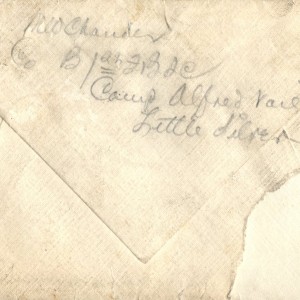 Chander
Co B 1st
Camp Alfred Vail
Little Silver